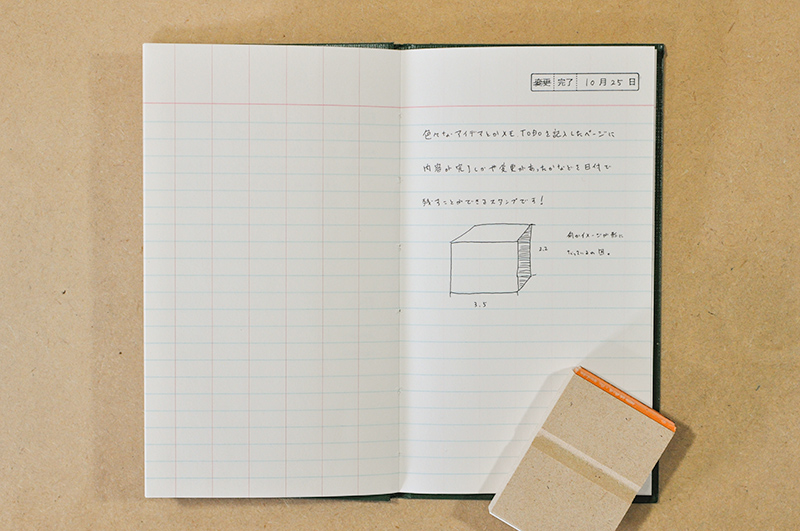 変更 完了 10月25日
色々なアイデアとかメモ、TODOを記入したページに
内容が完了したかや変更があったかなどを日付で
残すことができるスタンプです!
2.2
何かイメージが形に
なっているの図。
3.5